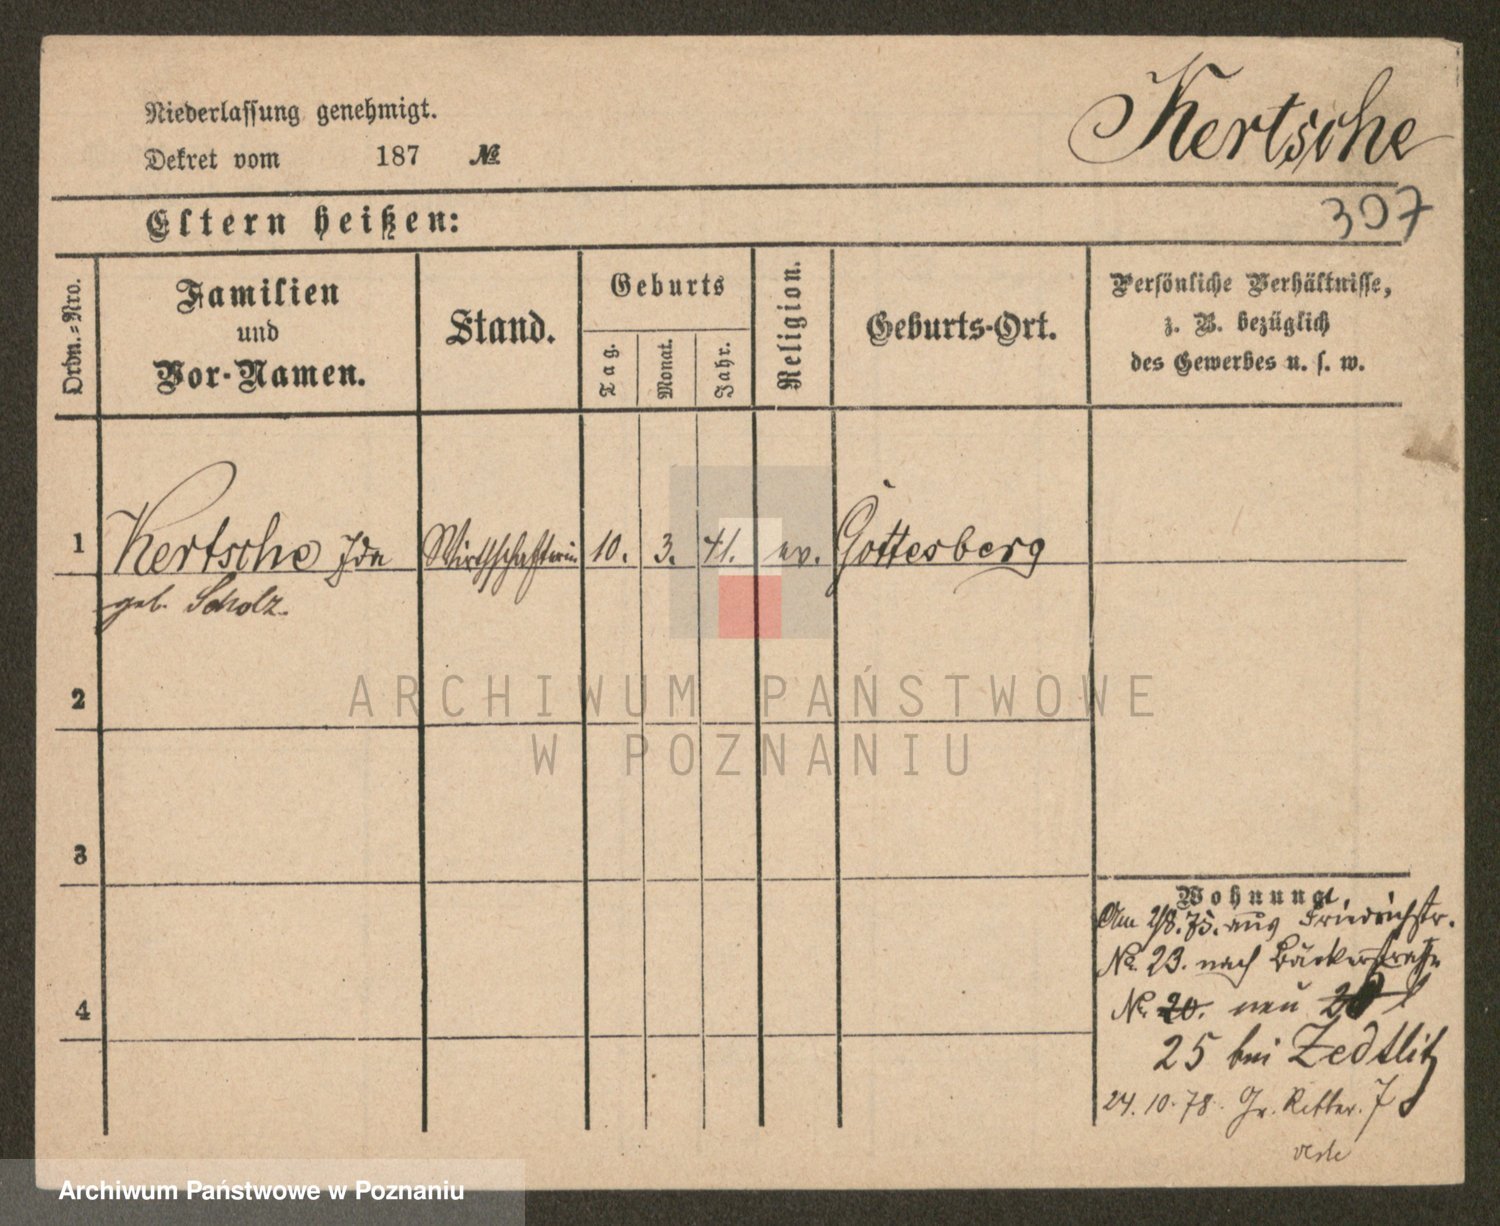 Kertsche
Niederlassung genehmigt.
Dekret vom 187 №
307
Eltern heißen:
Ordn.=Nro.
Familien
und
Vor-Namen.
Stand.
Geburts
Tag.
Monat.
Jahr.
Religion.
Geburts-Ort.
Persönliche Verhältnisse,
z. B. bezüglich
des Gewerbes u. s. w.
1 Kertsche Ida Wirthschafterin 10. 3. 41. ev. Gottesberg
geb. Scholz.
2
3
4
Wohnung
Am 2/8. 75. aus Friedrichstr.
No. 23. nach Bäckerstraße
No. 20. neu
25 bei Zedtlitz
24. 10. 78. Gr. Ritter. 7
ARCHIWUM PAŃSTWOWE
W POZNANIU
Archiwum Państwowe w Poznaniu